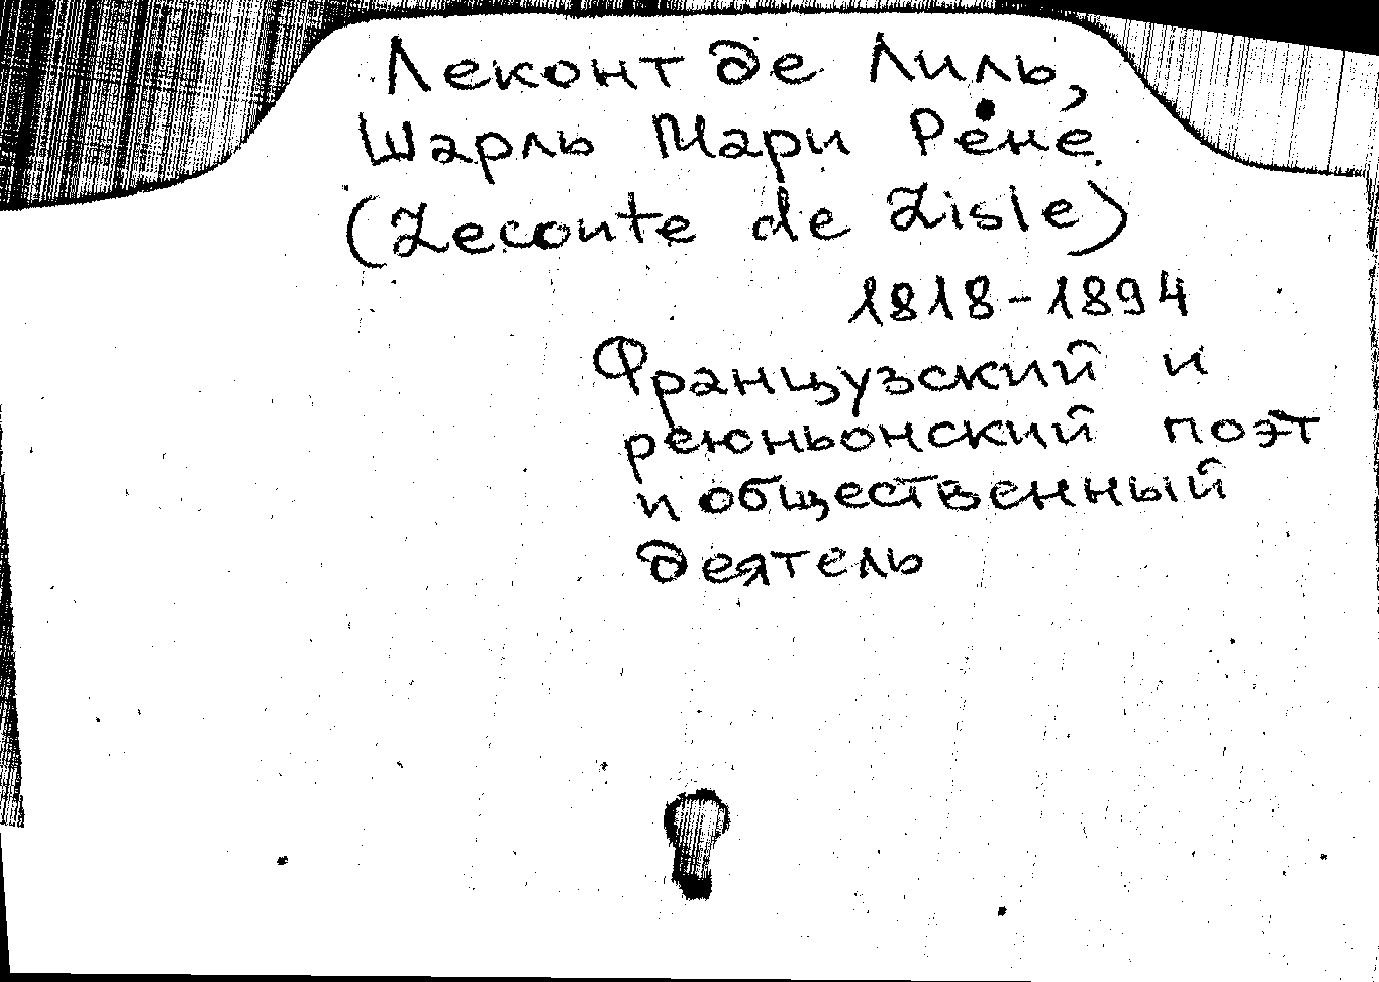 Леконт де Лиль,
Шарль Мари Рене
(Leconte de Lisle)
1818-1894
Французский и
реюньонский поэт
и общественный
деятель